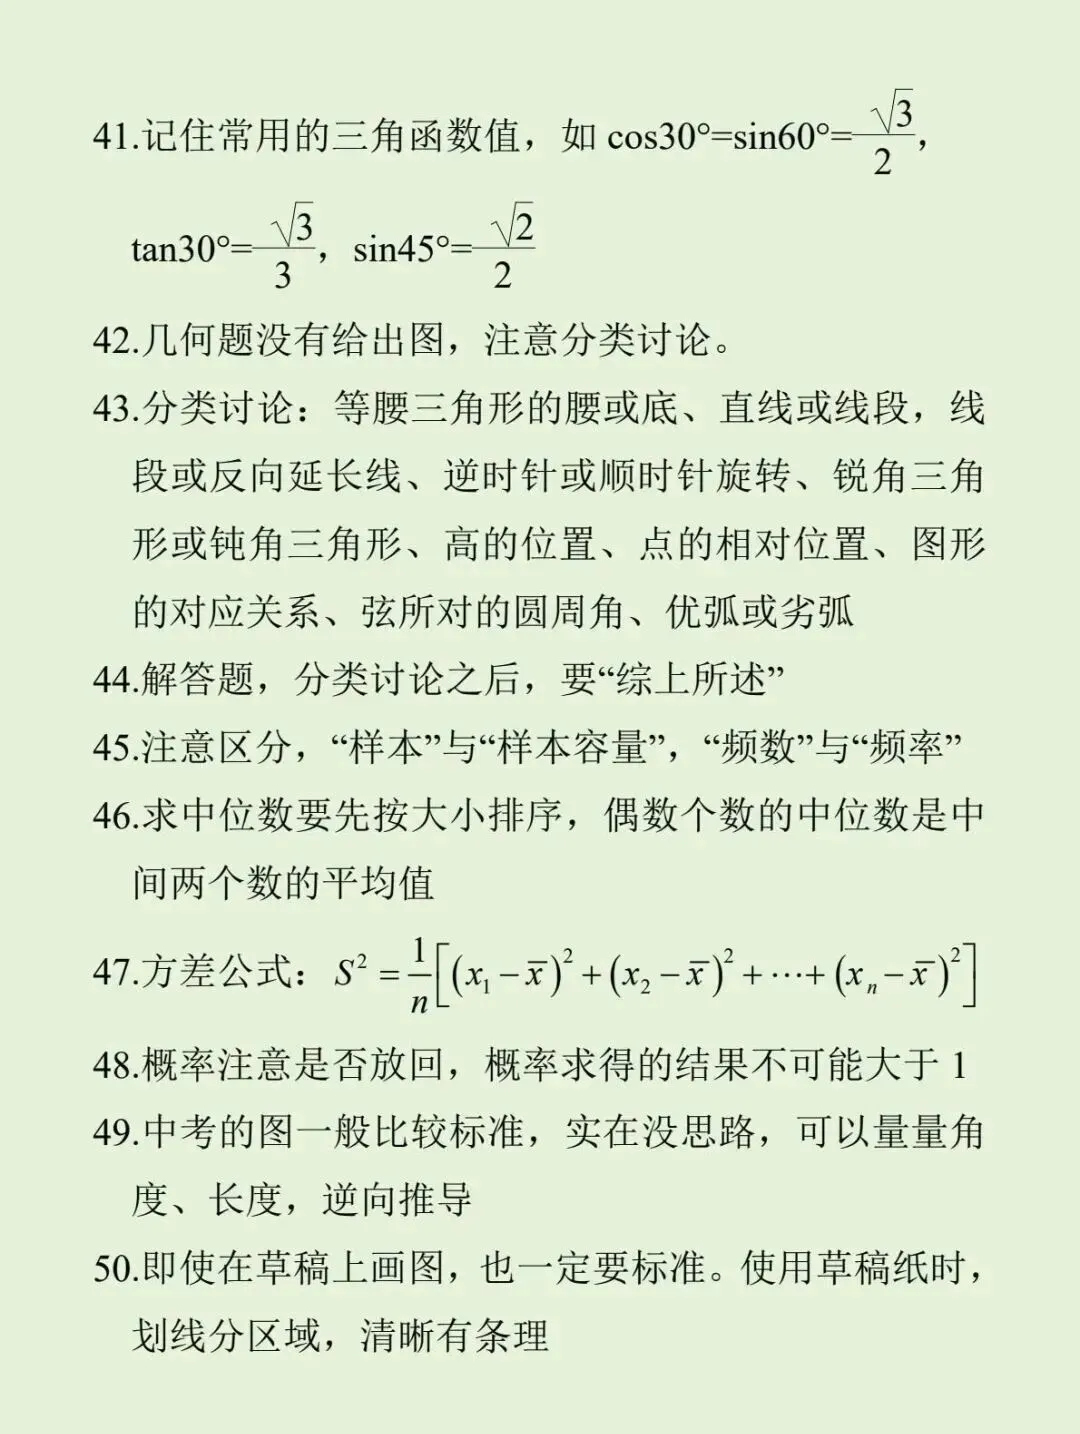 41.记住常用的三角函数值，如 cos30°=sin60°=√3/2，
tan30°=√3/3，sin45°=√2/2
42.几何题没有给出图，注意分类讨论。
43.分类讨论：等腰三角形的腰或底、直线或线段，线
段或反向延长线、逆时针或顺时针旋转、锐角三角
形或钝角三角形、高的位置、点的相对位置、图形
的对应关系、弦所对的圆周角、优弧或劣弧
44.解答题，分类讨论之后，要“综上所述”
45.注意区分，“样本”与“样本容量”，“频数”与“频率”
46.求中位数要先按大小排序，偶数个数的中位数是中
间两个数的平均值
47.方差公式：S² = 1/n[(x₁ − x̄)² + (x₂ − x̄)² + ⋯ + (xₙ − x̄)²]
48.概率注意是否放回，概率求得的结果不可能大于 1
49.中考的图一般比较标准，实在没思路，可以量量角
度、长度，逆向推导
50.即使在草稿上画图，也一定要标准。使用草稿纸时，
划线分区域，清晰有条理